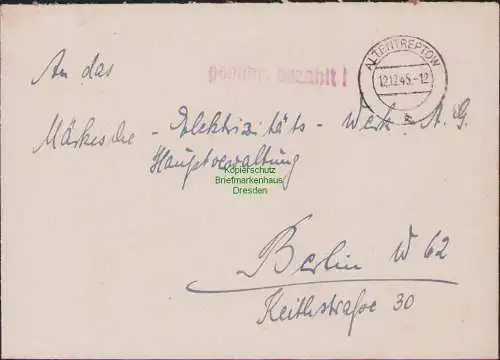 ALTENTREPTOW
12.12.45.-12
gebühr bezahlt !
An das
Märkische - Elektrizitäts - Werk A. G.
Hauptverwaltung
Kopierschutz
Briefmarkenhaus
Dresden
Berlin W 62
Keithstraße 30